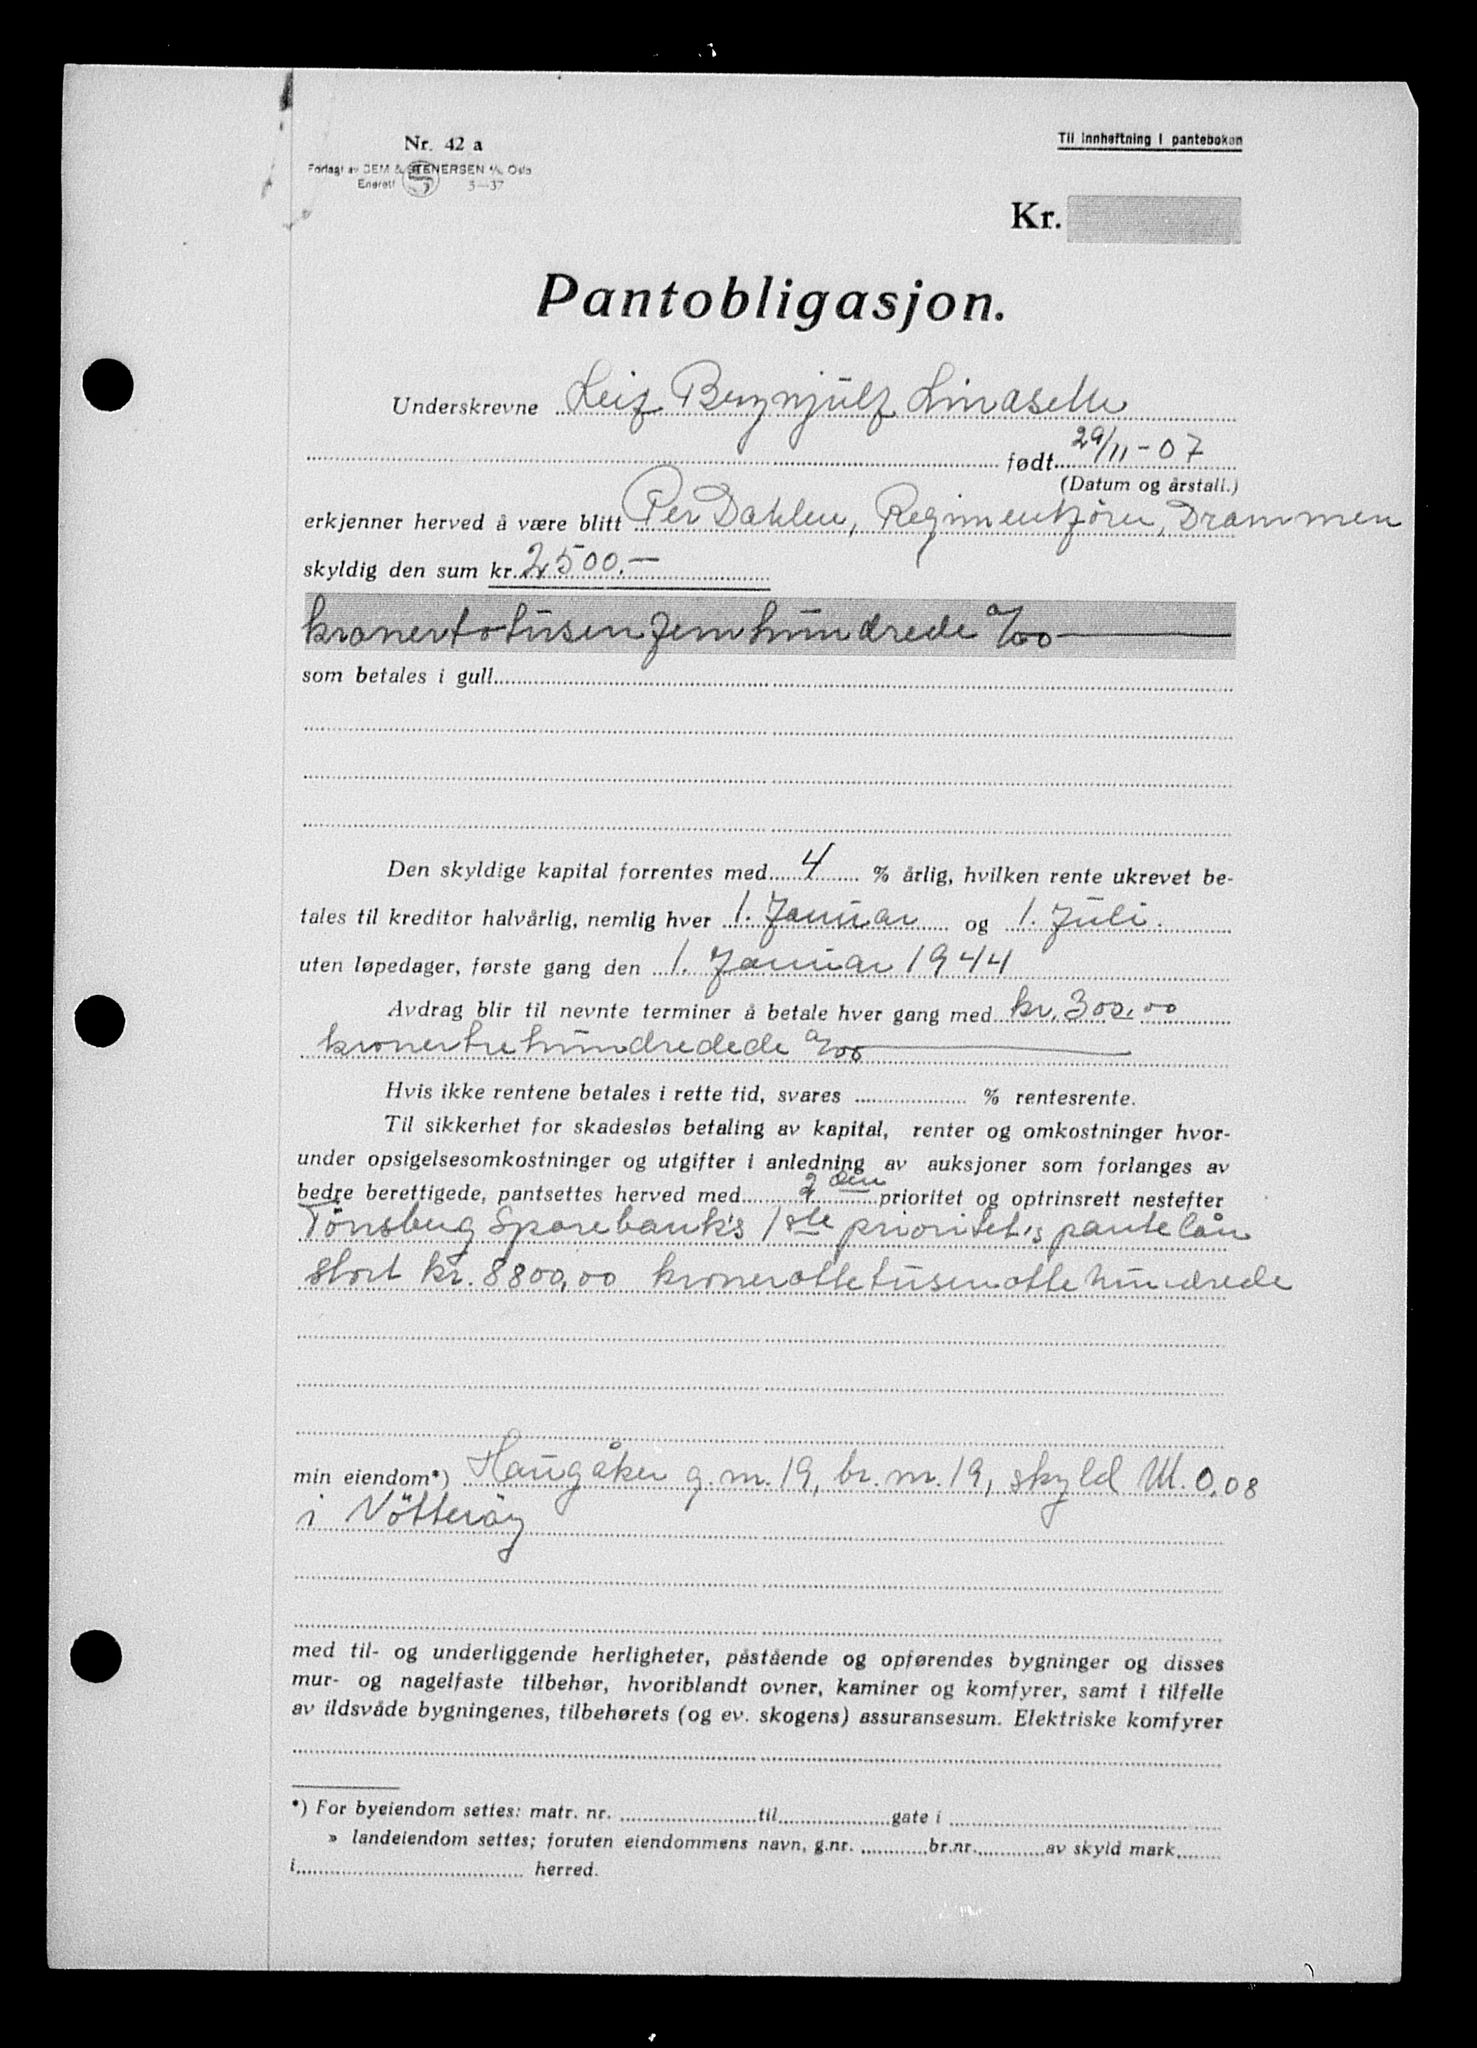 Nr. 42 a
Til innheftning i panteboken
Forlagt av SEM & STENERSEN A/S Oslo
Enerett 3—37
Kr.
Pantobligasjon.
Underskrevne Leif Brynjulf
født 29/11-07
(Datum og årstall.)
erkjenner herved å være blitt Per Dahlen, Drammen
skyldig den sum kr. 2500.—
kroner totusenfemhundrede 0/00
som betales i gull
Den skyldige kapital forrentes med 4 % årlig, hvilken rente ukrevet be-
tales til kreditor halvårlig, nemlig hver 1. Januar og 1. Juli.
uten løpedager, første gang den 1. Januar 1944
Avdrag blir til nevnte terminer å betale hver gang med kr. 300.00
kroner trehundredede 0/00
Hvis ikke rentene betales i rette tid, svares % rentesrente.
Til sikkerhet for skadesløs betaling av kapital, renter og omkostninger hvor-
under opsigelsesomkostninger og utgifter i anledning av auksjoner som forlanges av
bedre berettigede, pantsettes herved med 2 den prioritet og optrinsrett nestefter
Tönsberg Sparebank's 1ste prioritet's pantelån
stort kr. 8800,00 kroner ottetusenottehundrede
min eiendom*) Haugåker g. nr. 19, br. nr. 19, skyld M. 0,08
i Nötteröy
med til- og underliggende herligheter, påstående og opførendes bygninger og disses
mur- og nagelfaste tilbehør, hvoriblandt ovner, kaminer og komfyrer, samt i tilfelle
av ildsvåde bygningenes, tilbehørets (og ev. skogens) assuransesum. Elektriske komfyrer
*) For byeiendom settes: matr. nr. til gate i
» landeiendom settes; foruten eiendommens navn, g.nr. br.nr. av skyld mark
i herred.